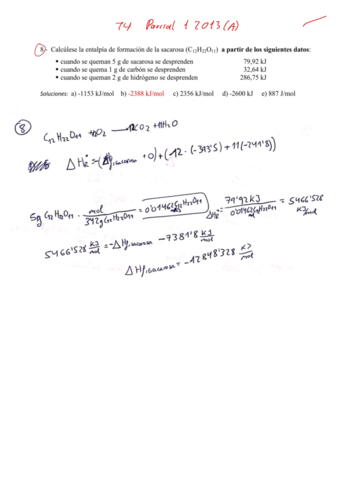 T4 Parcial 1 2013 (A)
8.- Calcúlese la entalpía de formación de la sacarosa (C₁₂H₂₂O₁₁) a partir de los siguientes datos:
• cuando se queman 5 g de sacarosa se desprenden 79,92 kJ
• cuando se quema 1 g de carbón se desprenden 32,64 kJ
• cuando se queman 2 g de hidrógeno se desprenden 286,75 kJ
Soluciones: a) -1153 kJ/mol b) -2388 kJ/mol c) 2356 kJ/mol d) -2600 kJ/mol e) 887 kJ/mol
8
C₁₂H₂₂O₁₁ + O₂ → CO₂ + H₂O
ΔH = -(ΔHf,sacarosa + 0) + (12 · (-393'5) + 11(-241'8))
5g C₁₂H₂₂O₁₁ · mol / 342g C₁₂H₂₂O₁₁ = 0'0146 C₁₂H₂₂O₁₁ ΔH = 79'92 KJ / 0'0146 C₁₂H₂₂O₁₁ = 5466'528 KJ/mol
5466'528 KJ/mol = -ΔHf,sacarosa - 7381'8 KJ/mol
ΔHf,sacarosa = -12848'328 KJ/mol